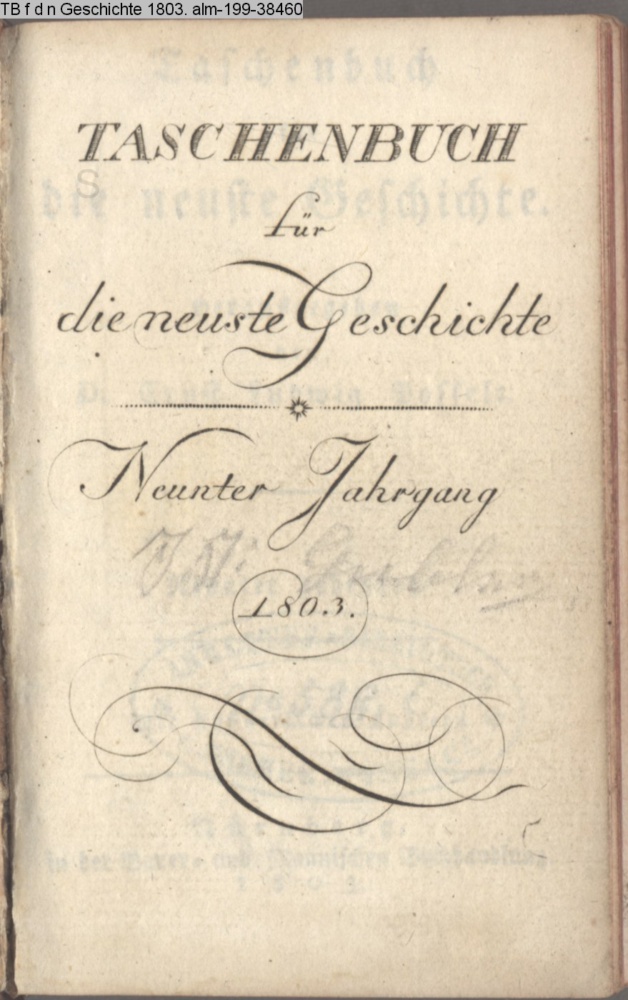 TB f d n Geschichte 1803. alm-199-38460
TASCHENBUCH
für
die neuste Geschichte
Neunter Jahrgang
1803.